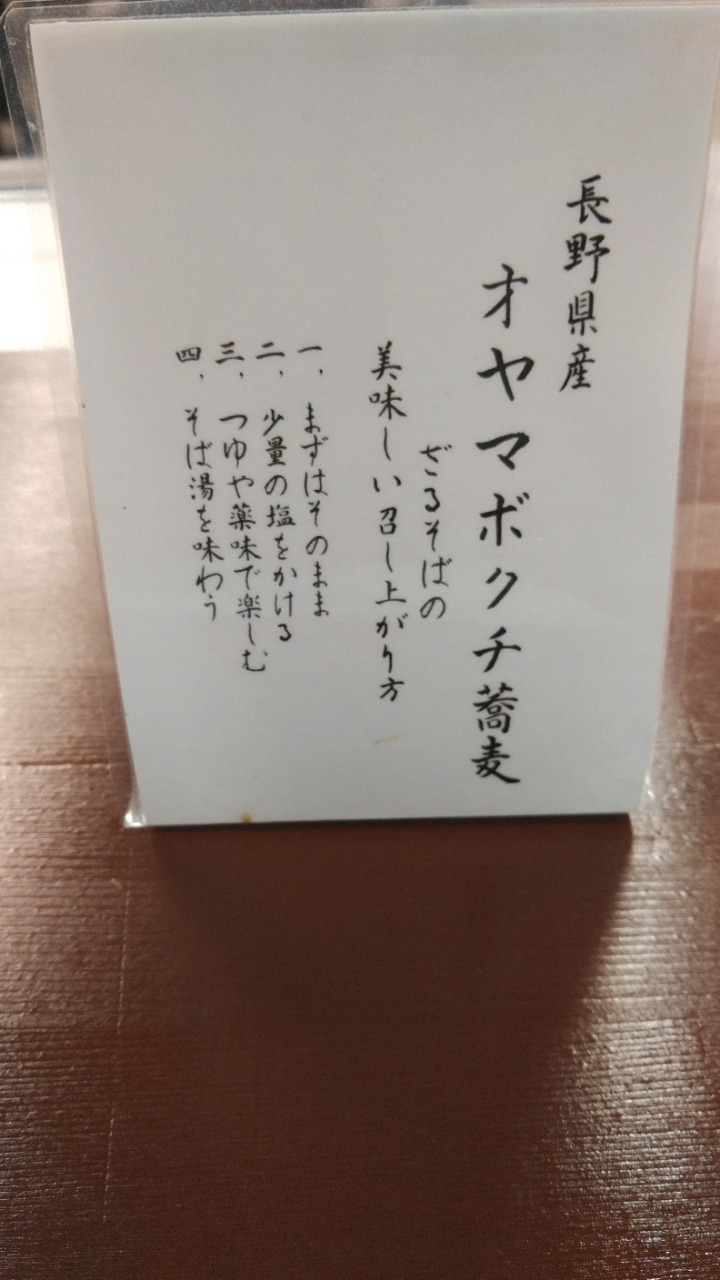 長野県産
オヤマボクチ蕎麦
ざるそばの
美味しい召し上がり方
一、まずはそのまま
二、少量の塩をかける
三、つゆや薬味で楽しむ
四、そば湯を味わう